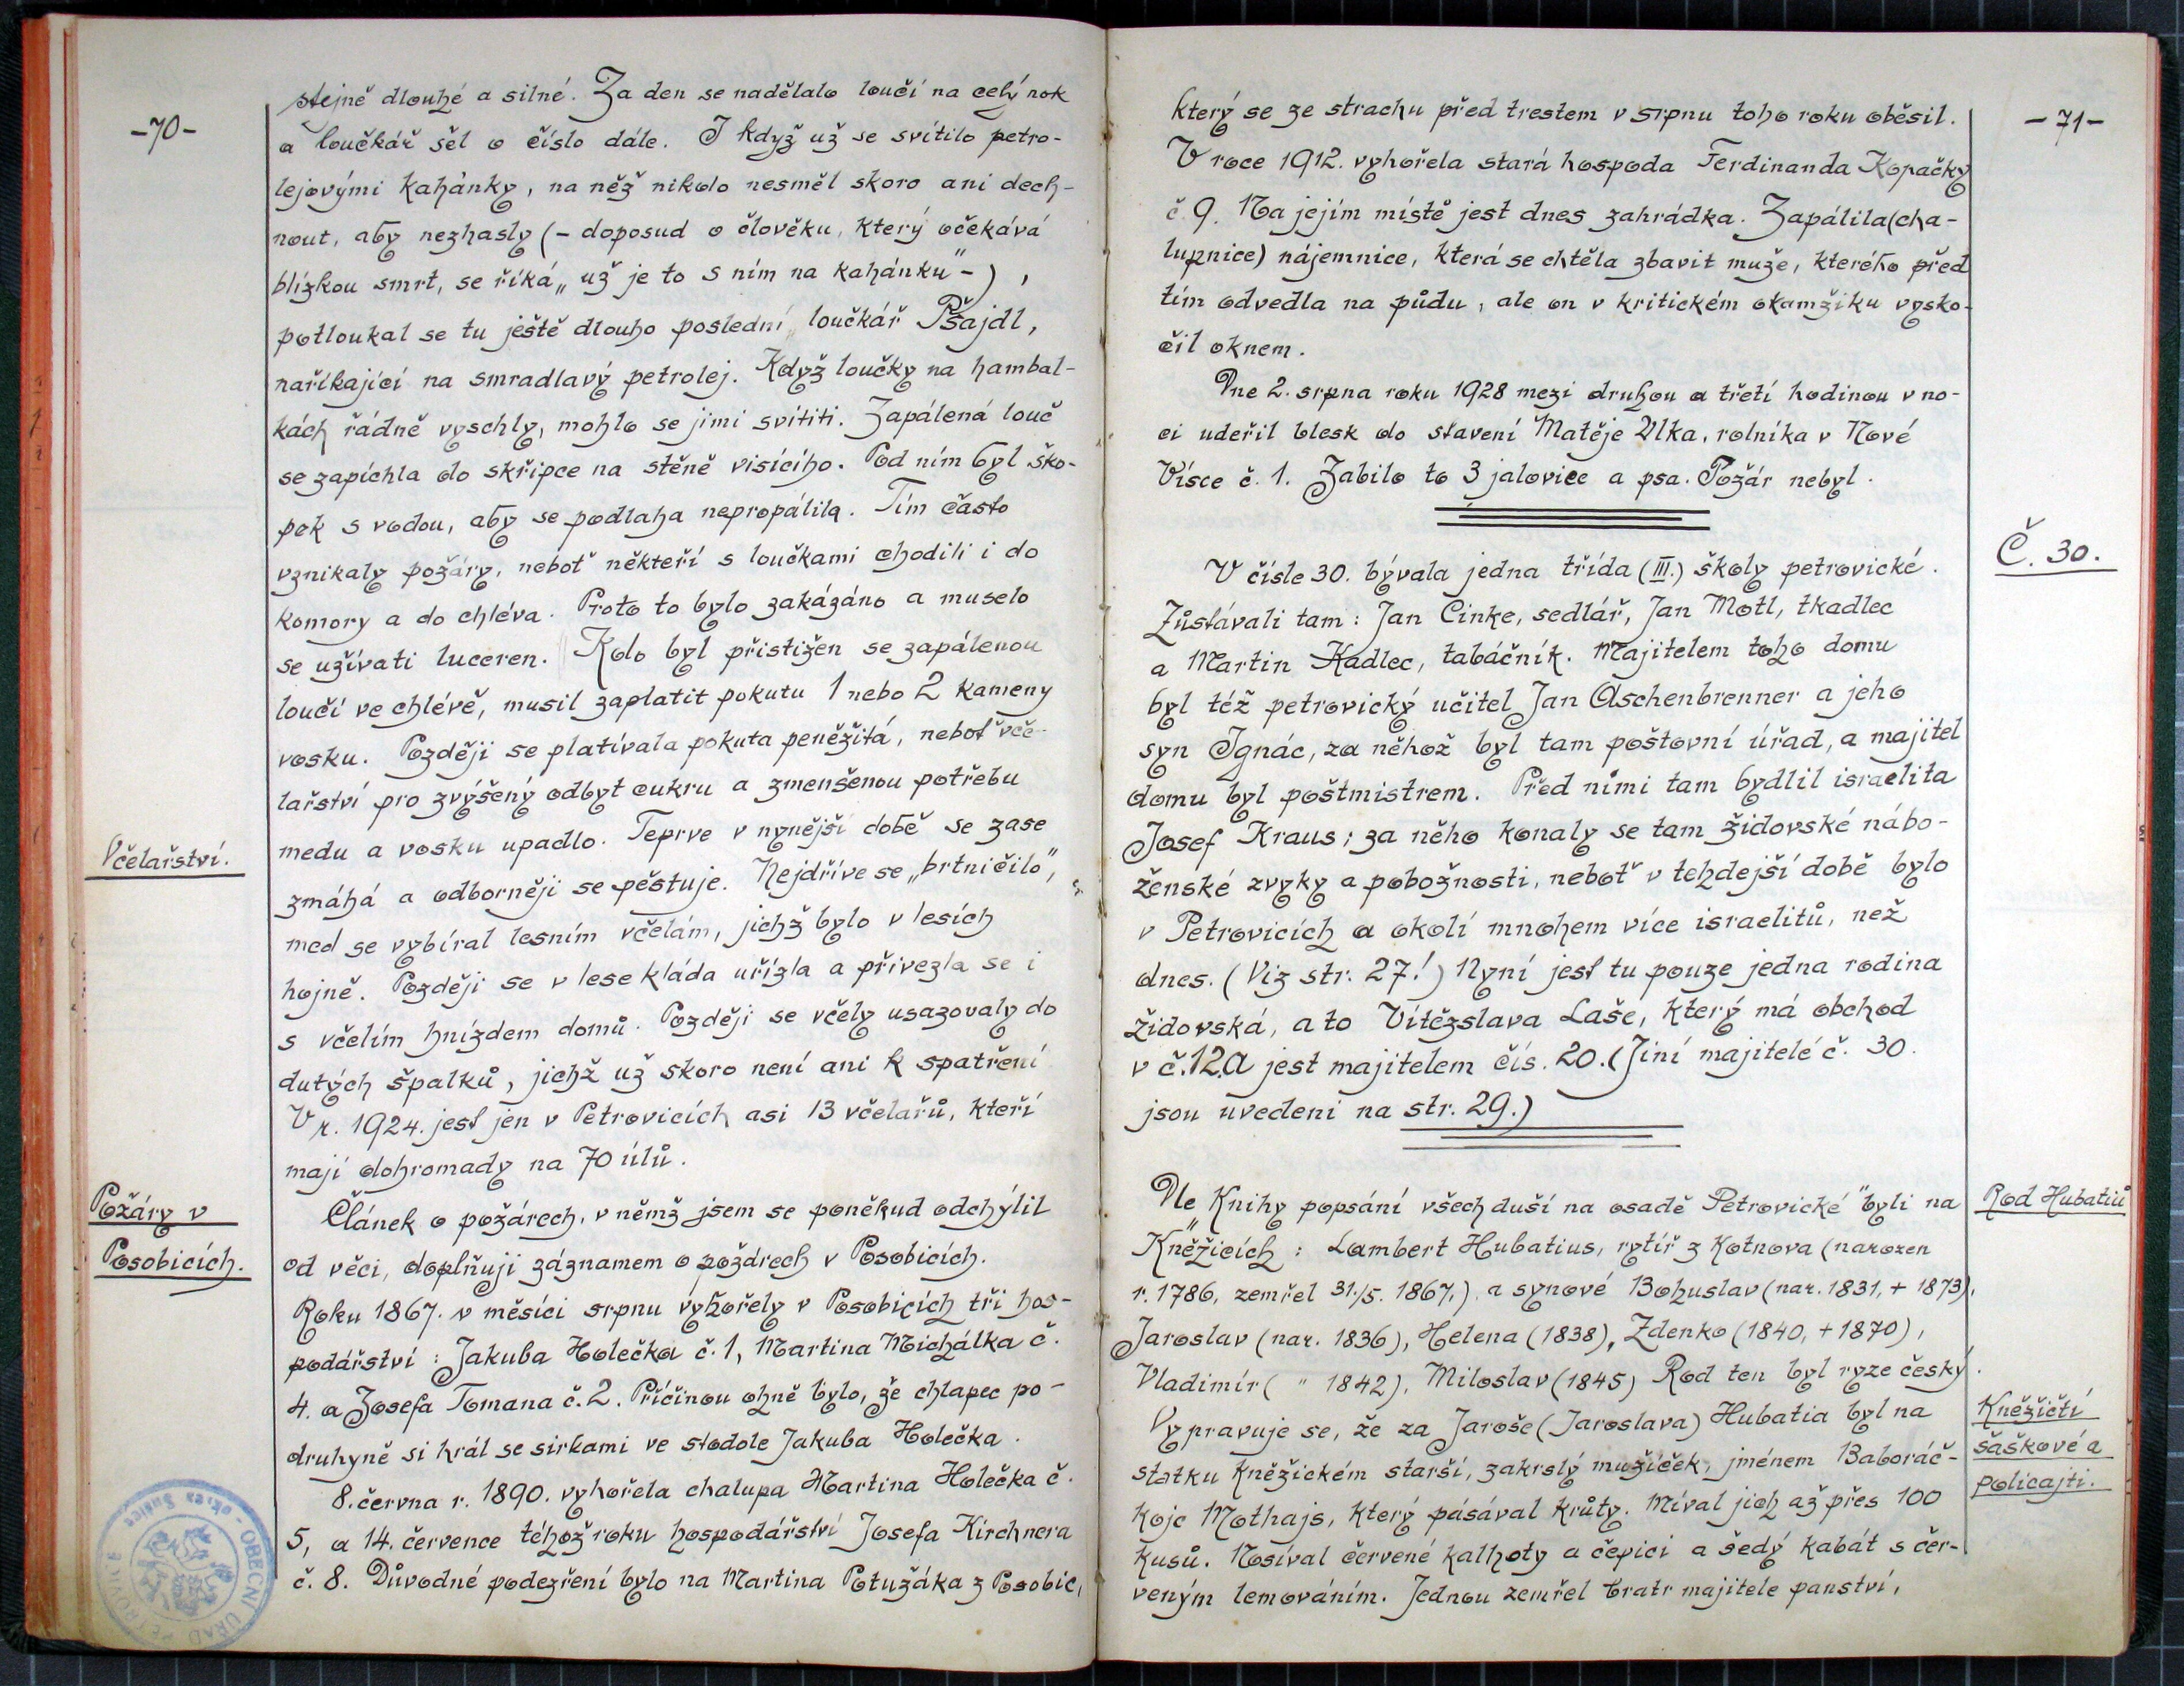 -70-
stejně dlouhé a silné. Za den se nadělalo loučí na celý rok
a loučkář šel o číslo dále. I když už se svítilo petro-
lejovými kahánky, na něž nikdo nesměl skoro ani dech-
nout, aby nezhasly (- doposud o člověku, který očekává
blízkou smrt, se říká „už je to s ním na kahánku"-),
potloukal se tu ještě dlouho poslední loučkář Pšajdl,
naříkající na smradlavý petrolej. Když loučky na hambal-
kách řádně vyschly, mohlo se jimi svítiti. Zapálená louč
se zapíchla do skřipce na stěně visícího. Pod ním byl ško-
pek s vodou, aby se podlaha nepropálila. Tím často
vznikaly požáry, neboť někteří s loučkami chodili i do
komory a do chléva. Proto to bylo zakázáno a muselo
se užívati luceren. Kdo byl přistižen se zapálenou
loučí ve chlévě, musil zaplatit pokutu 1 nebo 2 kameny
vosku. Později se platívala pokuta peněžitá, neboť vče-
lařství pro zvýšený odbyt cukru a zmenšenou potřebu
Včelařství.
medu a vosku upadlo. Teprve v nynější době se zase
zmáhá a odborněji se pěstuje. Nejdříve se „brtničilo",
med se vybíral lesním včelám, jichž bylo v lesích
hojně. Později se v lese kláda uřízla a přivezla se i
s včelím hnízdem domů. Později se včely usazovaly do
dutých špalků, jichž už skoro není ani k spatření
V r. 1924. jest jen v Petrovicích asi 13 včelařů, kteří
mají dohromady na 70 úlů.
Požáry v
Posobicích.
Článek o požárech, v němž jsem se poněkud odchýlil
od věci, doplňuji záznamem o požárech v Posobicích.
Roku 1867. v měsíci srpnu vyhořely v Posobicích tři hos-
podářství: Jakuba Holečka č. 1, Martina Michálka č.
4. a Josefa Tomana č. 2. Příčinou ohně bylo, že chlapec po-
druhyně si hrál se sirkami ve stodole Jakuba Holečka.
8. června r. 1890. vyhořela chalupa Martina Holečka č.
5, a 14. července téhož roku hospodářství Josefa Kirchnera
č. 8. Důvodné podezření bylo na Martina Potužáka z Posobic,
OBECNÍ ÚŘAD PETROV - okres Sušice
-71-
který se ze strachu před trestem v srpnu toho roku oběsil.
V roce 1912. vyhořela stará hospoda Ferdinanda Kopačky
č. 9. Na jejím místě jest dnes zahrádka. Zapálila (cha-
lupnice) nájemnice, která se chtěla zbavit muže, kterého před
tím odvedla na půdu, ale on v kritickém okamžiku vysko-
čil oknem.
Dne 2. srpna roku 1928 mezi druhou a třetí hodinou v no-
ci udeřil blesk do stavení Matěje Vlka, rolníka v Nové
Vísce č. 1. Zabilo to 3 jalovice a psa. Požár nebyl.
Č. 30.
V čísle 30. bývala jedna třída (III.) školy petrovické.
Zůstávali tam: Jan Cinke, sedlář, Jan Motl, tkadlec
a Martin Kadlec, tabáčník. Majitelem toho domu
byl též petrovický učitel Jan Aschenbrenner a jeho
syn Ignác, za něhož byl tam poštovní úřad, a majitel
domu byl poštmistrem. Před nimi tam bydlil israelita
Josef Kraus; za něho konaly se tam židovské nábo-
ženské zvyky a pobožnosti, neboť v tehdejší době bylo
v Petrovicích a okolí mnohem více israelitů, než
dnes. (Viz str. 27!) Nyní jest tu pouze jedna rodina
židovská, a to Vítězslava Laše, který má obchod
v č. 12. a jest majitelem čís. 20. (Jiní majitelé č. 30.
jsou uvedeni na str. 29.)
Rod Hubatiů
Dle „Knihy popsání všech duší na osadě Petrovické" byli na
Kněžicích: Lambert Hubatius, rytíř z Kotnova (narozen
r. 1786, zemřel 31./5. 1867,) a synové Bohuslav (nar. 1831, + 1873),
Jaroslav (nar. 1836), Helena (1838), Zdenko (1840, + 1870),
Vladimír ( " 1842), Miloslav (1845) Rod ten byl ryze český.
Kněžičtí
šaškové a
policajti.
Vypravuje se, že za Jaroše (Jaroslava) Hubatia byl na
statku kněžickém starší, zakrslý mužíček, jménem Baboráč-
kojc Mothajs, který pásával krůty. Míval jich až přes 100
kusů. Nosíval červené kalhoty a čepici a šedý kabát s čer-
veným lemováním. Jednou zemřel bratr majitele panství,